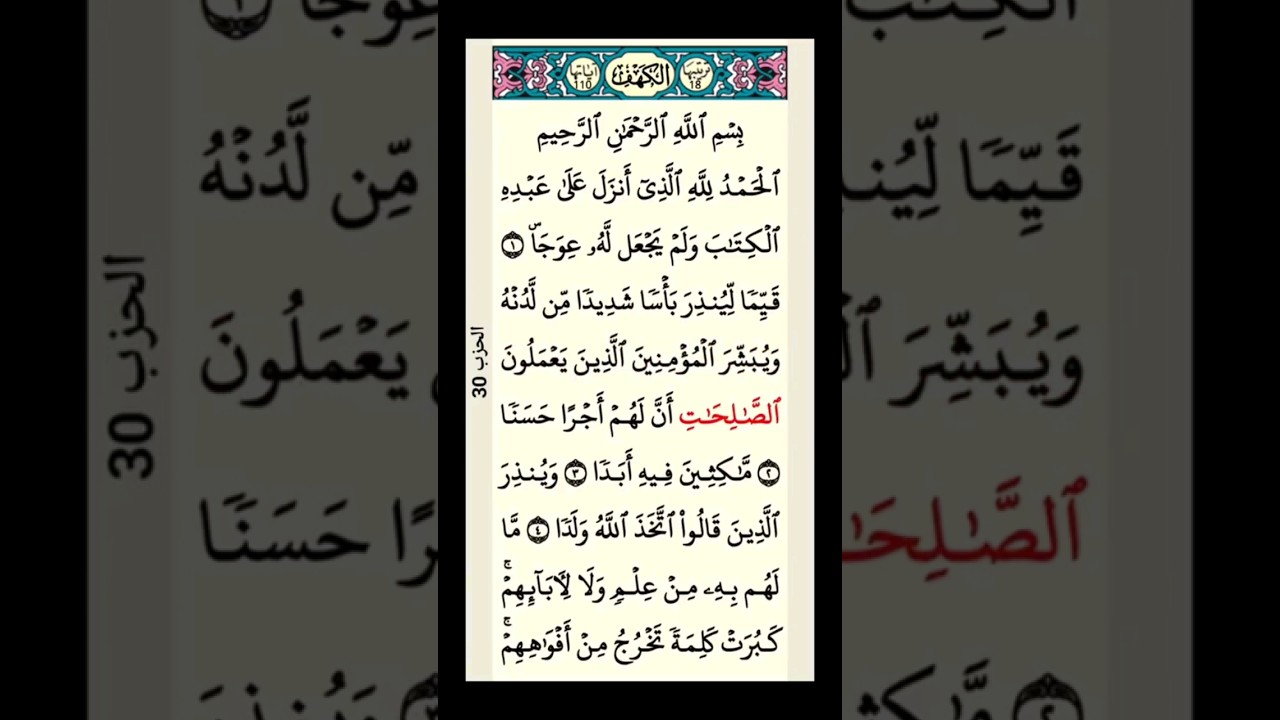 ترتيبها 18 الكهف اياتها 110
بِسۡمِ ٱللَّهِ ٱلرَّحۡمَٰنِ ٱلرَّحِيمِ
ٱلۡحَمۡدُ لِلَّهِ ٱلَّذِيٓ أَنزَلَ عَلَىٰ عَبۡدِهِ
ٱلۡكِتَٰبَ وَلَمۡ يَجۡعَل لَّهُۥ عِوَجَاۜ ١
قَيِّمٗا لِّيُنذِرَ بَأۡسٗا شَدِيدٗا مِّن لَّدُنۡهُ
وَيُبَشِّرَ ٱلۡمُؤۡمِنِينَ ٱلَّذِينَ يَعۡمَلُونَ
ٱلصَّٰلِحَٰتِ أَنَّ لَهُمۡ أَجۡرًا حَسَنٗا
٢ مَّٰكِثِينَ فِيهِ أَبَدٗا ٣ وَيُنذِرَ
ٱلَّذِينَ قَالُواْ ٱتَّخَذَ ٱللَّهُ وَلَدٗا ٤ مَّا
لَهُم بِهِۦ مِنۡ عِلۡمٖ وَلَا لِأٓبَآئِهِمۡۚ
كَبُرَتۡ كَلِمَةٗ تَخۡرُجُ مِنۡ أَفۡوَٰهِهِمۡۚ
الحزب 30